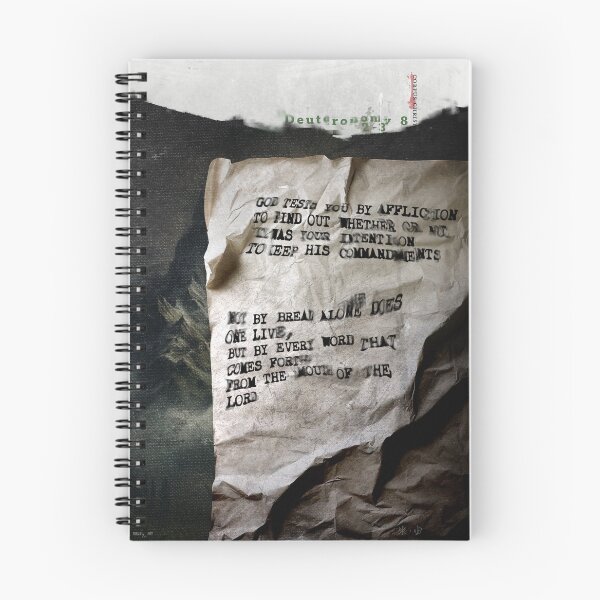 Deuteronomy 8
2-3
GOD TESTS YOU BY AFFLICTION
TO FIND OUT WHETHER OR NOT
IT WAS YOUR INTENTION
TO KEEP HIS COMMANDMENTS
NOT BY BREAD ALONE DOES
ONE LIVE,
BUT BY EVERY WORD THAT
COMES FORTH
FROM THE MOUTH OF THE
LORD